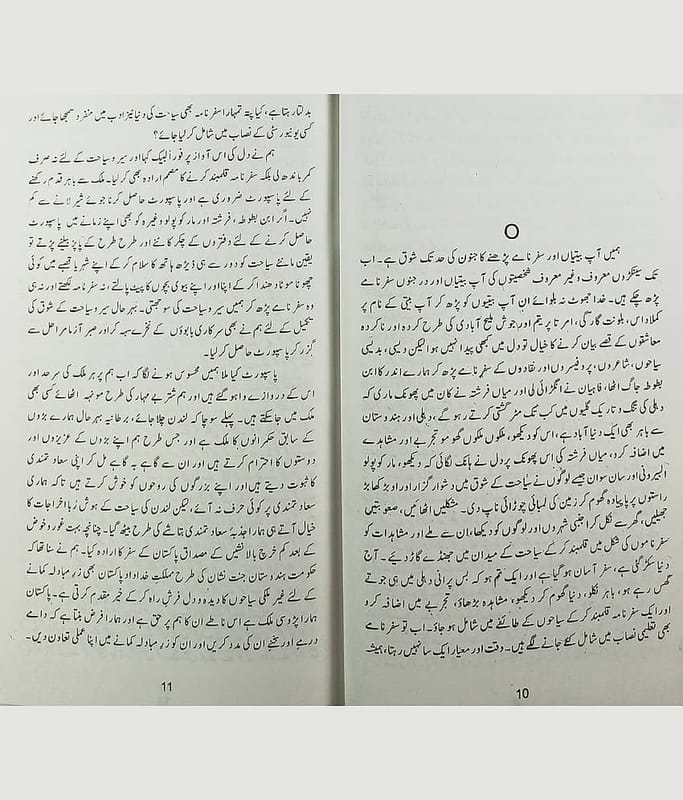 ہمیں آپ بیتیاں اور سفرنامے پڑھنے کا جنون کی حد تک شوق ہے۔ اب
تک سینکڑوں معروف وغیر معروف شخصیتوں کی آپ بیتیاں اور درجنوں سفرنامے
پڑھ چکے ہیں۔ خدا جھوٹ نہ بلوائے ان آپ بیتیوں کو پڑھ کر آپ بیتی کے نام پر
کملا داس، بلونت گارگی، امرتا پریتم اور جوش ملیح آبادی کی طرح کردہ اور ناکردہ
معاشقوں کے قصے بیان کرنے کا خیال تو دل میں کبھی پیدا نہیں ہوا لیکن دیسی، بدیسی
سیاحوں، شاعروں، پروفیسروں اور نقادوں کے سفرنامے پڑھ کر ہمارے اندر کا ابن
بطوطہ جاگ اٹھا، فاہیان نے انگڑائی لی اور میاں فرشتہ نے کان میں پھونک ماری کہ
دہلی کی تنگ وتاریک گلیوں میں کب تک مٹرگشتی کرتے رہو گے، دہلی اور ہندوستان
سے باہر بھی ایک دنیا آباد ہے، اس کو دیکھو، ملکوں ملکوں گھومو تجربے اور مشاہدے
میں اضافہ کرو، میاں فرشتہ کی اس پھونک پر دل نے ہانک لگائی کہ دیکھو، مارکوپولو
البیرونی اور سان سوان جیسے لوگوں نے سیاحت کے شوق میں دشوار گزار اور اوبڑ کھابڑ
راستوں پر پاپیادہ گھوم کر زمین کی لمبائی چوڑائی ناپ دی۔ مشکلیں اٹھائیں، صعوبتیں
جھیلیں، گھر سے نکل کر اجنبی شہروں اور لوگوں کو دیکھا، ان سے ملے اور مشاہدات کو
سفرناموں کی شکل میں قلمبند کر کے سیاحت کے میدان میں جھنڈے گاڑ دیئے۔ آج
دنیا سکڑ گئی ہے، سفر آسان ہو گیا ہے اور ایک تم ہو کہ بس پرانی دہلی میں ہی جوتے
گھس رہے ہو، باہر نکلو، دنیا گھوم کر دیکھو، مشاہدہ بڑھاؤ، تجربے میں اضافہ کرو
اور ایک سفرنامہ قلمبند کر کے سیاحوں کے طائفے میں شامل ہو جاؤ۔ اب تو سفرنامے
بھی تعلیمی نصاب میں شامل کئے جانے لگے ہیں۔ وقت اور معیار ایک سا نہیں رہتا، ہمیشہ
10
بدلتا رہتا ہے، کیا پتہ تمہارا سفرنامہ بھی سیاحت کی دنیا نیز ادب میں منفرد سمجھا جائے اور
کسی یونیورسٹی کے نصاب میں شامل کر لیا جائے؟
ہم نے دل کی اس آواز پر فوراً لبیک کہا اور سیر وسیاحت کے لئے نہ صرف
کمر باندھ لی بلکہ سفرنامہ قلمبند کرنے کا مصمم ارادہ بھی کر لیا۔ ملک سے باہر قدم رکھنے
کے لئے پاسپورٹ ضروری ہے اور پاسپورٹ حاصل کرنا جوئے شیر لانے سے کم
نہیں۔ اگر ابن بطوطہ، فرشتہ اور مارکوپولو وغیرہ کو بھی اپنے زمانے میں پاسپورٹ
حاصل کرنے کے لئے دفتروں کے چکر کاٹنے اور طرح طرح کے پاپڑ بیلنے پڑتے تو
یقین مانئے سیاحت کو دور سے ہی ڈیڑھ ہاتھ کا سلام کر کے اپنے شہر یا قصبے میں کوئی
چھوٹا موٹا دھندا کر کے اپنا اور اپنے بیوی بچوں کا پیٹ پالتے، نہ سفرنامہ لکھتے اور نہ ہی
وہ سفرنامے پڑھ کر ہمیں سیر وسیاحت کی سوجھتی۔ بہرحال سیر وسیاحت کے شوق کی
تکمیل کے لئے ہم نے بھی سرکاری بابوؤں کے نخرے سہہ کر اور صبر آزما مراحل سے
گزر کر پاسپورٹ حاصل کر لیا۔
پاسپورٹ کیا ملا ہمیں محسوس ہونے لگا کہ اب ہم پر ہر ملک کی سرحد اور
اس کے دروازے وا ہو گئے ہیں اور ہم شتر بے مہار کی طرح مونہہ اٹھائے کسی بھی
ملک میں جا سکتے ہیں۔ پہلے سوچا کہ لندن چلا جائے، برطانیہ بہرحال ہمارے بڑوں
کے سابق حکمرانوں کا ملک ہے اور جس طرح ہم اپنے بڑوں کے عزیزوں اور
دوستوں کا احترام کرتے ہیں اور ان سے گاہے بہ گاہے مل کر اپنی سعادتمندی
کا ثبوت دیتے ہیں اور اپنے بزرگوں کی روحوں کو خوش کرتے ہیں تاکہ ہماری
سعادتمندی پر کوئی حرف نہ آئے، لیکن لندن کی سیاحت کے ہوش ربا اخراجات کا
خیال آتے ہی ہمارا جذبۂ سعادتمندی بتاشے کی طرح بیٹھ گیا۔ چنانچہ بہت غور وخوض
کے بعد کم خرچ بالا نشیں کے مصداق پاکستان کے سفر کا ارادہ کیا۔ ہم نے سنا تھا کہ
حکومت ہندوستان جنت نشان کی طرح مملکت خداداد پاکستان بھی زرمبادلہ کمانے
کے لئے غیر ملکی سیاحوں کا دیدہ ودل فرش راہ کر کے خیر مقدم کرتی ہے۔ پاکستان
ہمارا پڑوسی ملک ہے اس ناطے ان کا ہم پر حق ہے اور ہمارا فرض بنتا ہے کہ دامے
درہے اور سخنے ان کی مدد کریں اور ان کو زرمبادلہ کمانے میں اپنا عملی تعاون دیں۔
11